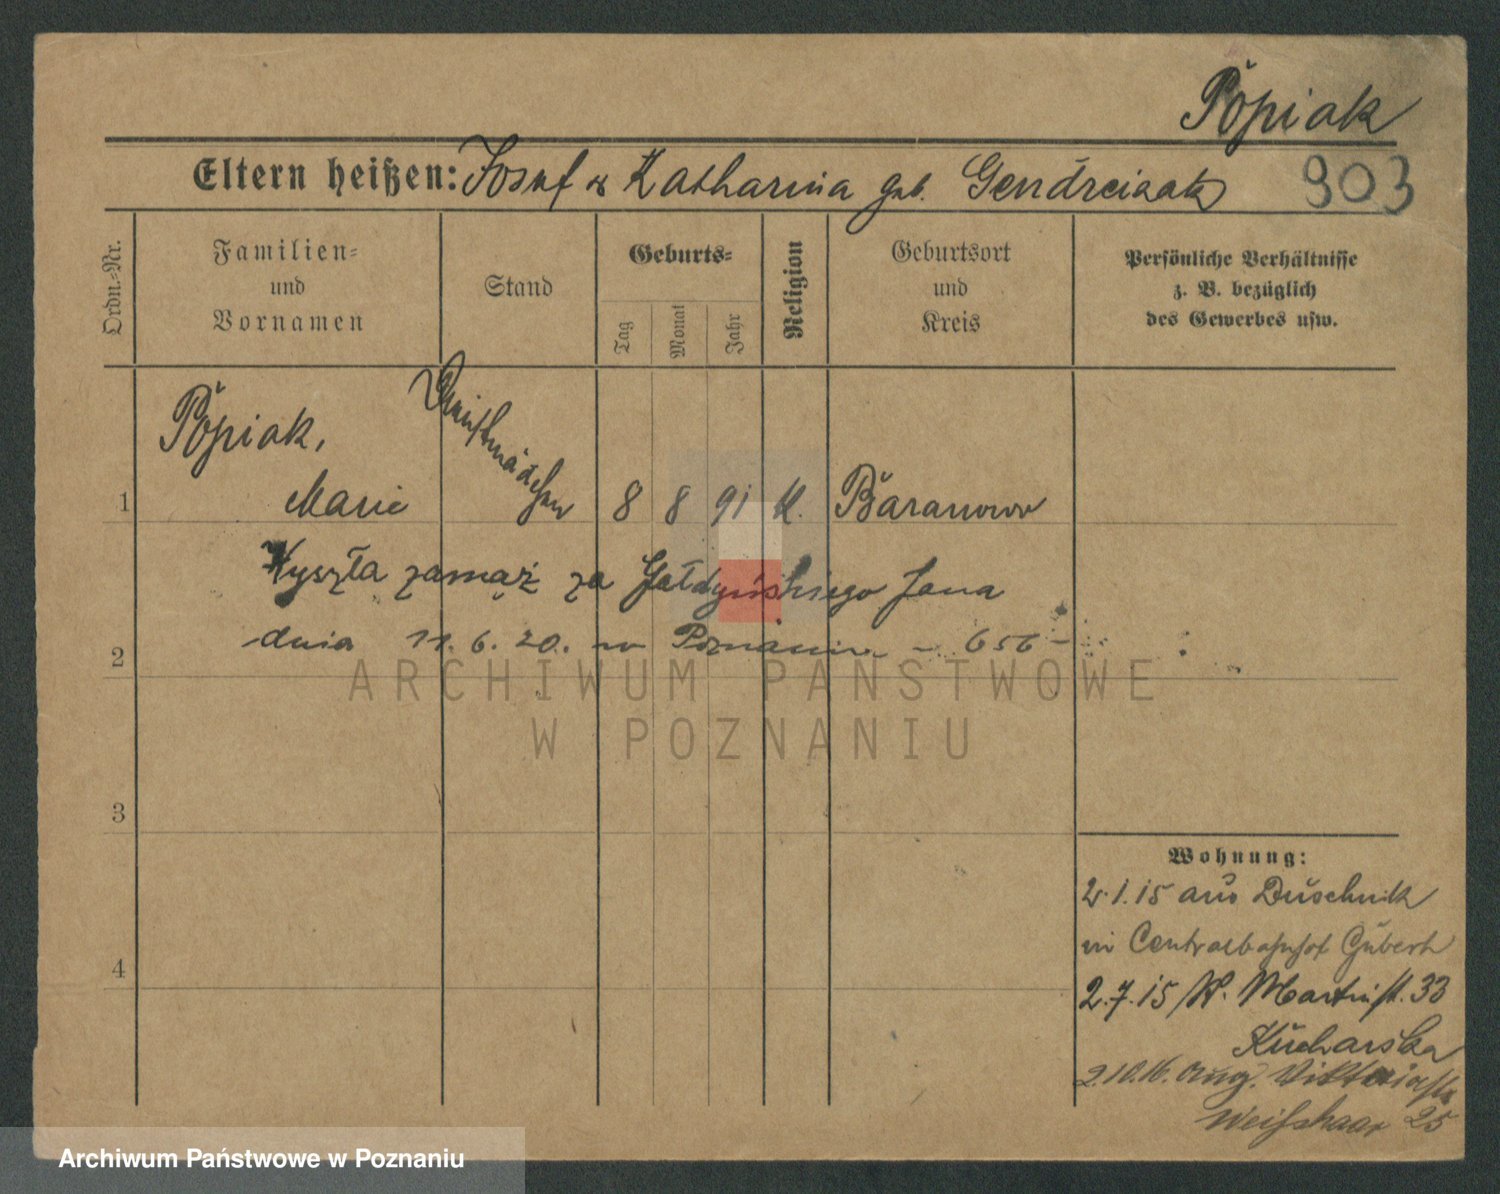 Popiak
Eltern heißen: Josef & Katharina geb. Gendreizak
903
Ordn.=Nr.
Familien=
und
Vornamen
Stand
Geburts=
Tag
Monat
Jahr
Religion
Geburtsort
und
Kreis
Persönliche Verhältnisse
z. B. bezüglich
des Gewerbes usw.
Popiak, Dienstmädchen
1 Marie 8 8 91 k. Baranowo
Wyszła zamąż za Gałdyńskiego Jana
dnia 11. 6. 20. w Poznaniu – 656 –
2
ARCHIWUM PAŃSTWOWE
W POZNANIU
3
Wohnung:
2.1.15 aus Duschnik
in Centralbahnhof
4
2.7.15 St. Martinst. 33
Kucharska
2.10.16. Aug. Viktoriastr
Weishaar 25
Archiwum Państwowe w Poznaniu